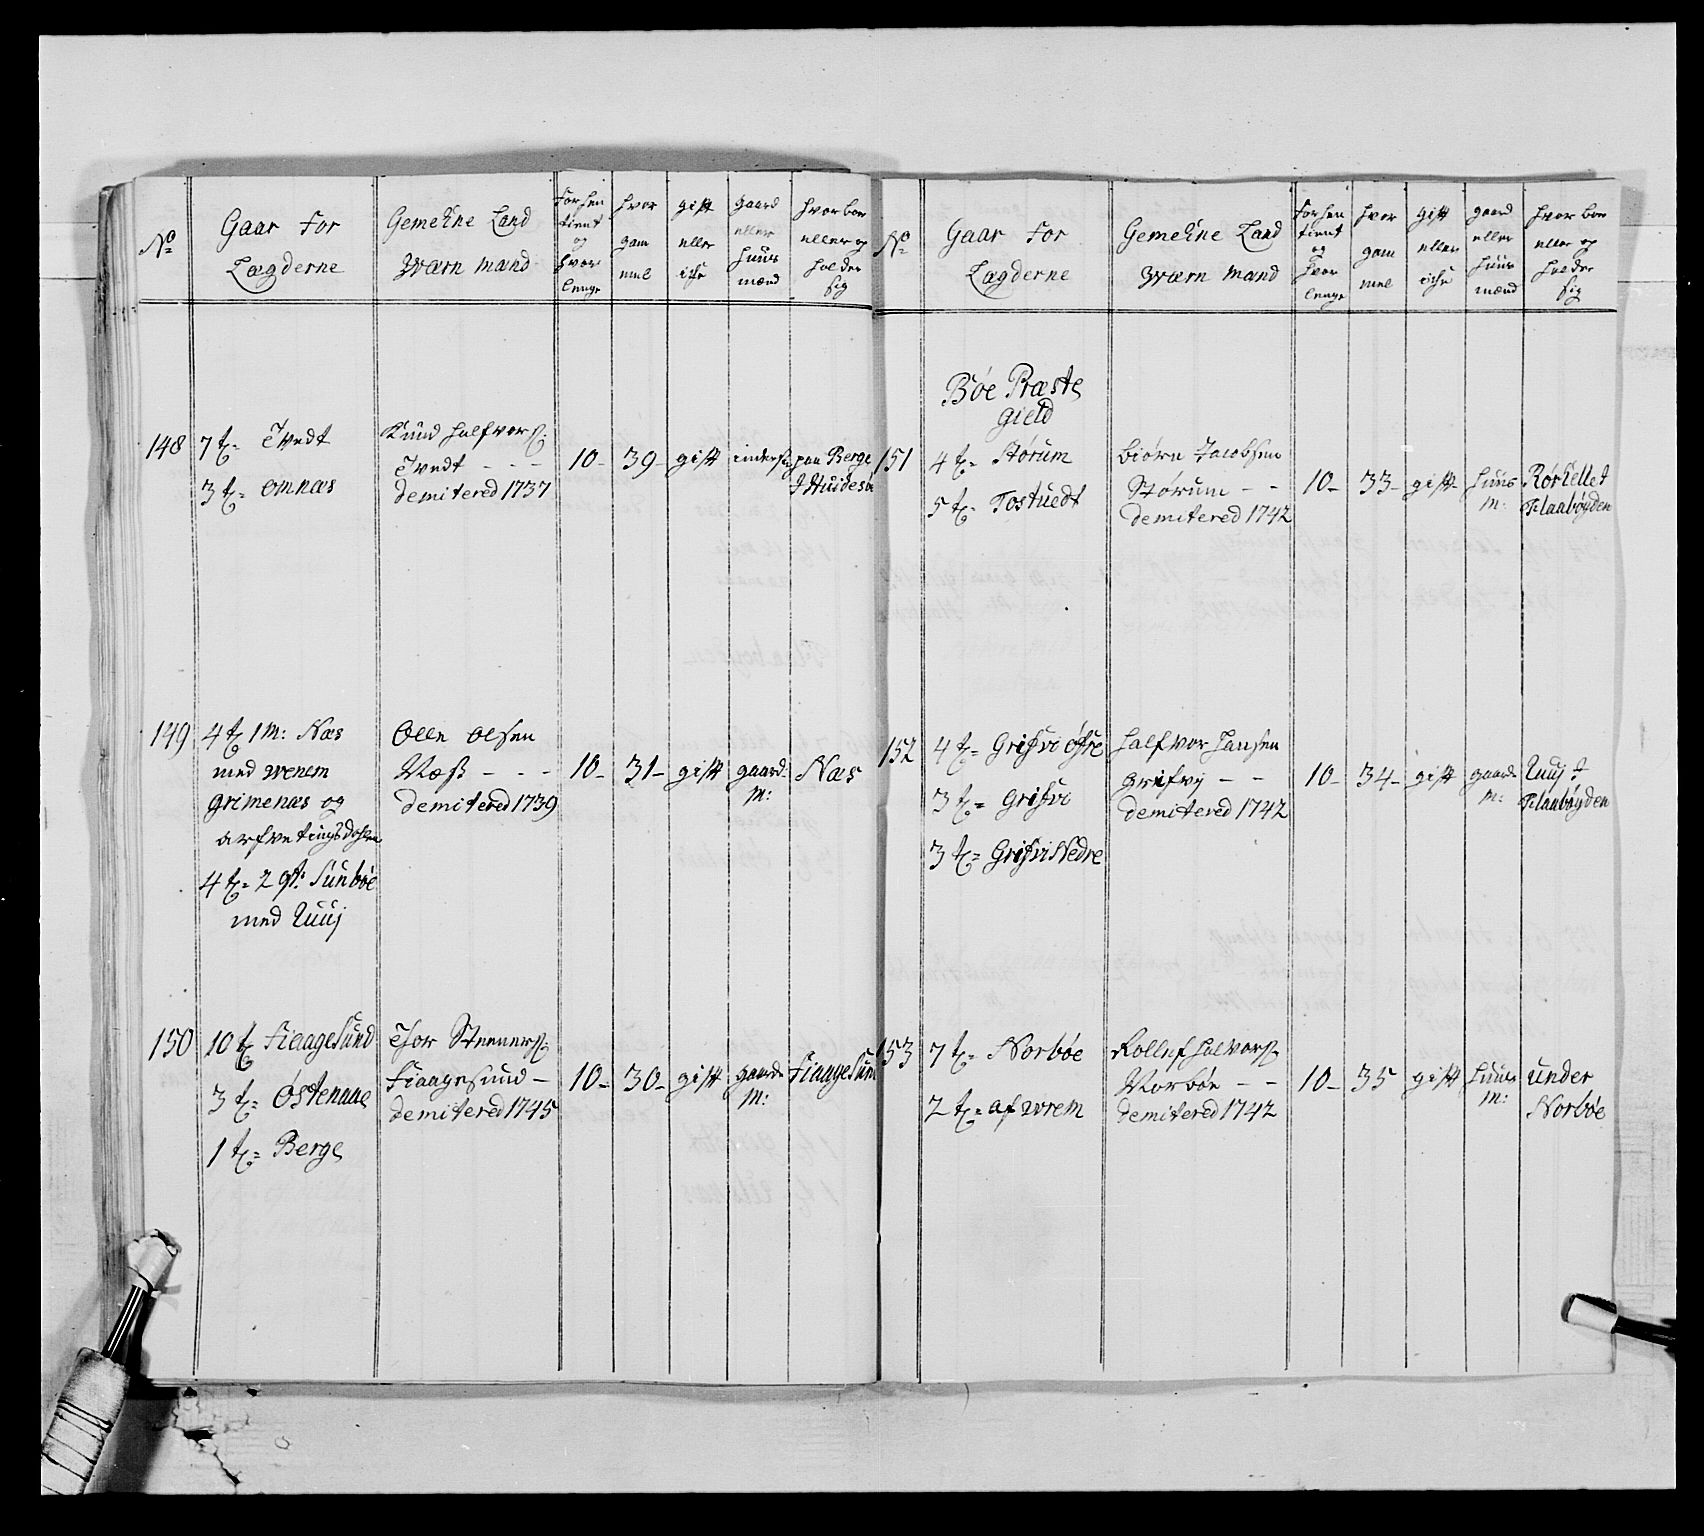 No
Gaar For
Lægderne
Gemeene Land
Wærn Mand
Forhen
tient
og
hvor
lenge
hvor
gam
mel
gift
eller
icke
gaard
eller
huus
mænd
hvor boe
eller op
holder
sig
148
7 t. Tvedt
3 t. Omnæs
Knud Halfvors:
Tvedt - - -
Demitered 1737
10 -
39 -
gift
inderst
paa Berge
I Huidesøe
149
4 t 1 m: Næs
med
Grimenæs og
4 t. 2 st: Sunbøe
med
Olle Olsen
Næß - - -
Demitered 1739
10 -
31 -
gift
gaard
m:
Næs
150
10 t Fiaagesund
3 t. Østenaae
1 t. Berge
Thor Steners:
Fiaagesund -
Demitered 1745
10 -
30 -
gift
gaard
m:
Fiaagesund
No
Gaar For
Lægderne
Gemeene Land
Wærn Mand
Forhen
tient
og
hvor
lenge
hvor
gam
mel
gift
eller
icke
gaard
eller
huus
mænd
hvor boe
eller op
holder
sig
Bøe Præste
Gield
151
4 t. Størum
5 t. Tostuedt
Biørn Jacobsen
Størum - -
Demitered 1742
10 -
33 -
gift -
huus
m:
Flaabøyden
152
4 t. Grifvi øfre
3 t. Grifvi
3 t. Grifvi Nedre
Halfvor Hansen
Grifvij - -
Demitered 1742
10 -
34 -
gift
gaard
m:
Flaabøyden
153
7 t. Norbøe
2 t. af
Rollef Halvors:
Norbøe - -
Demitered 1742
10 -
35
gift
huus
m:
under
Norbøe